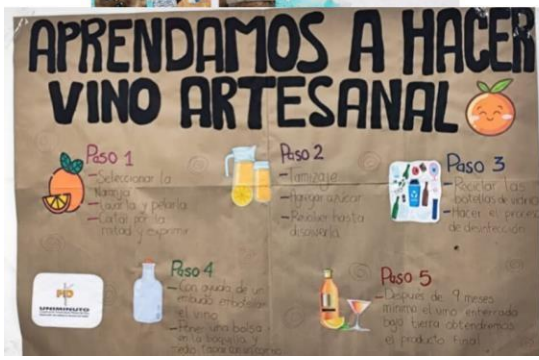 APRENDAMOS A HACER
VINO ARTESANAL
Paso 1
-Seleccionar la
Naranja
-Lavarla y pelarla
-Cortar por la
mitad y exprimir
Paso 2
-Tamizaje
-Agregar azúcar
-Revolver hasta
disolverla
Paso 3
-Reciclar las
botellas de vidrio
-Hacer el proceso
de desinfección
Paso 4
-Con ayuda de un
embudo embotellar
el vino
-Poner una bolsa
en la boquilla y
Paso 5
-Despues de 9 meses
minimo el vino enterrado
bajo tierra obtendremos
el producto final
UNIMINUTO